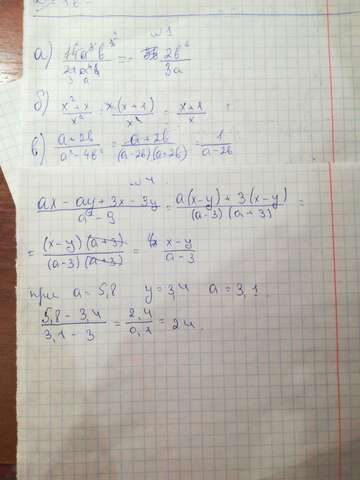 № 1
а) = 2b⁴/3a
б) (x² + x)/x² = x(x + 1)/x² = (x + 1)/x
в) (a + 2b)/(a² - 4b²) = (a + 2b)/((a - 2b)(a + 2b)) = 1/(a - 2b)
№ 4
(ax - ay + 3x - 3y)/(a² - 9) = (a(x - y) + 3(x - y))/((a - 3)(a + 3)) =
= ((x - y)(a + 3))/((a - 3)(a + 3)) = (x - y)/(a - 3)
при a = 5,8 y = 3,4 a = 3,1.
(5,8 - 3,4)/(3,1 - 3) = 2,4/0,1 = 24.